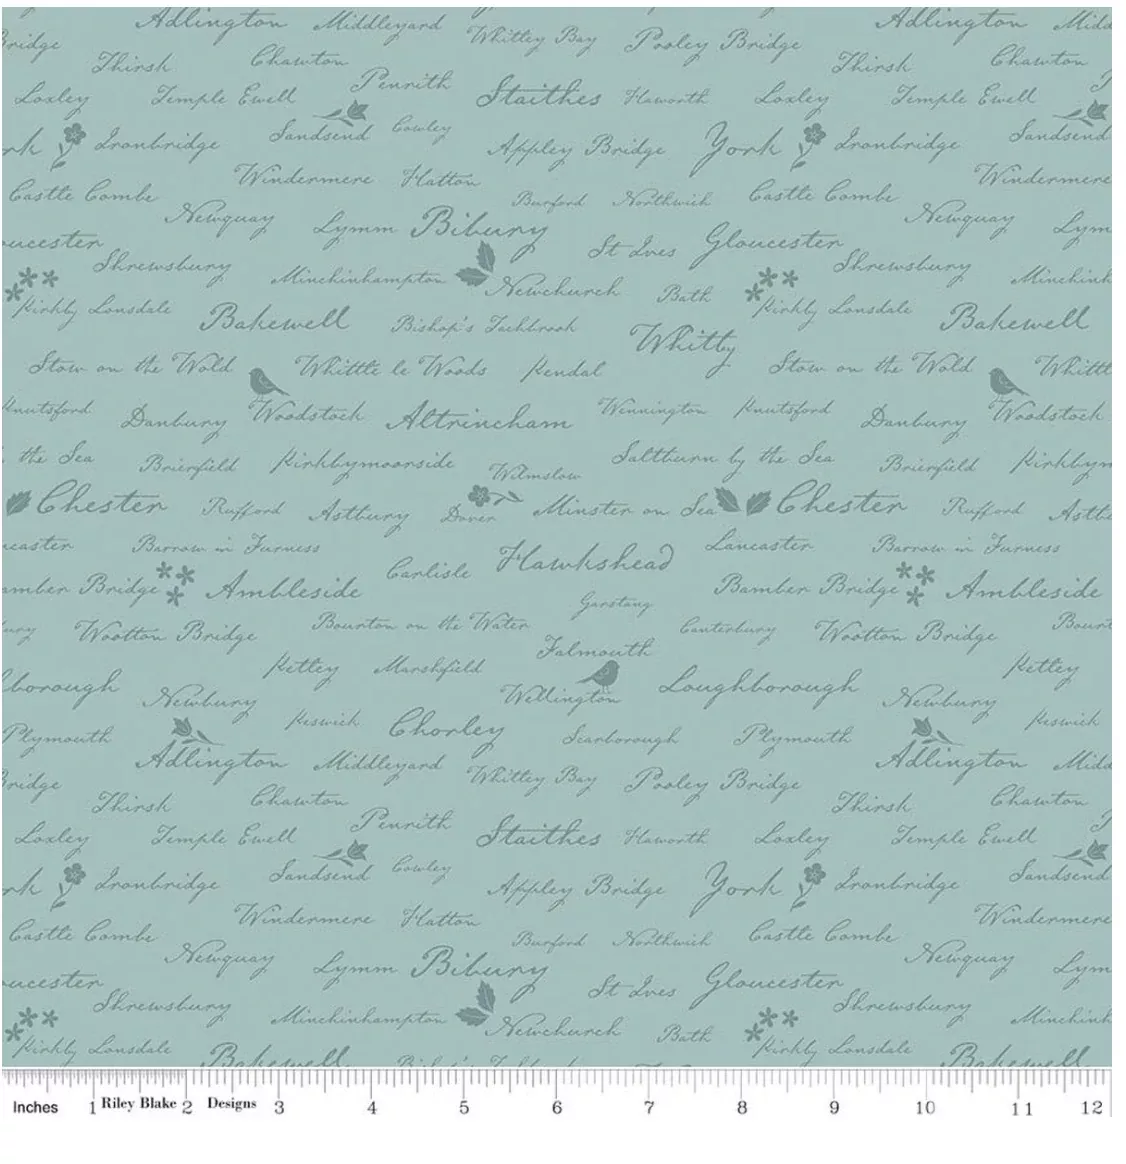 Adlington Middleyard Whitley Bay Pooley Bridge Adlington Midd
Bridge Thirsk Chawton Thirsk Chawton
Loxley Temple Ewell Penrith Staithes Haworth Loxley Temple Ewell P
rk Ironbridge Sandsend Cowley Appley Bridge York Ironbridge Sandsend
Castle Combe Windermere Hatton Burford Northwich Castle Combe Windermere
Newquay Lymm Bibury St Ives Gloucester Newquay Lym
oucester Shrewsbury Minchinhampton Newchurch Bath Shrewsbury Minchinh
Kirkby Lonsdale Bakewell Bishop's Tachbrook Whitby Kirkby Lonsdale Bakewell
Stow on the Wold Whittle le Woods Kendal Stow on the Wold Whittl
Knutsford Danbury Woodstock Altrincham Wennington Knutsford Danbury Woodstock
the Sea Brierfield Kirkbymoorside Wilmslow Saltburn by the Sea Brierfield Kirkbym
Chester Rufford Astbury Dover Minster on Sea Chester Rufford Astb
ncaster Barrow in Furness Carlisle Hawkshead Lancaster Barrow in Furness
amber Bridge Ambleside Garstang Bamber Bridge Ambleside
ury Wootton Bridge Bourton on the Water Canterbury Wootton Bridge Bourt
Ketley Marshfield Falmouth Ketley
hborough Newbury Wellington Loughborough Newbury
Plymouth Keswick Chorley Scarborough Plymouth Keswick
Adlington Middleyard Whitley Bay Pooley Bridge Adlington Midd
Bridge Thirsk Chawton Thirsk Chawton
Loxley Temple Ewell Penrith Staithes Haworth Loxley Temple Ewell P
rk Ironbridge Sandsend Cowley Appley Bridge York Ironbridge Sandsend
Castle Combe Windermere Hatton Burford Northwich Castle Combe Windermere
Newquay Lymm Bibury St Ives Gloucester Newquay Lym
oucester Shrewsbury Minchinhampton Newchurch Bath Shrewsbury Minchinh
Kirkby Lonsdale Bakewell Kirkby Lonsdale Bakewell
Inches 1 Riley Blake 2 Designs 3 4 5 6 7 8 9 10 11 12